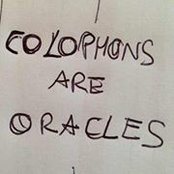 COLOPHONS
ARE
ORACLES